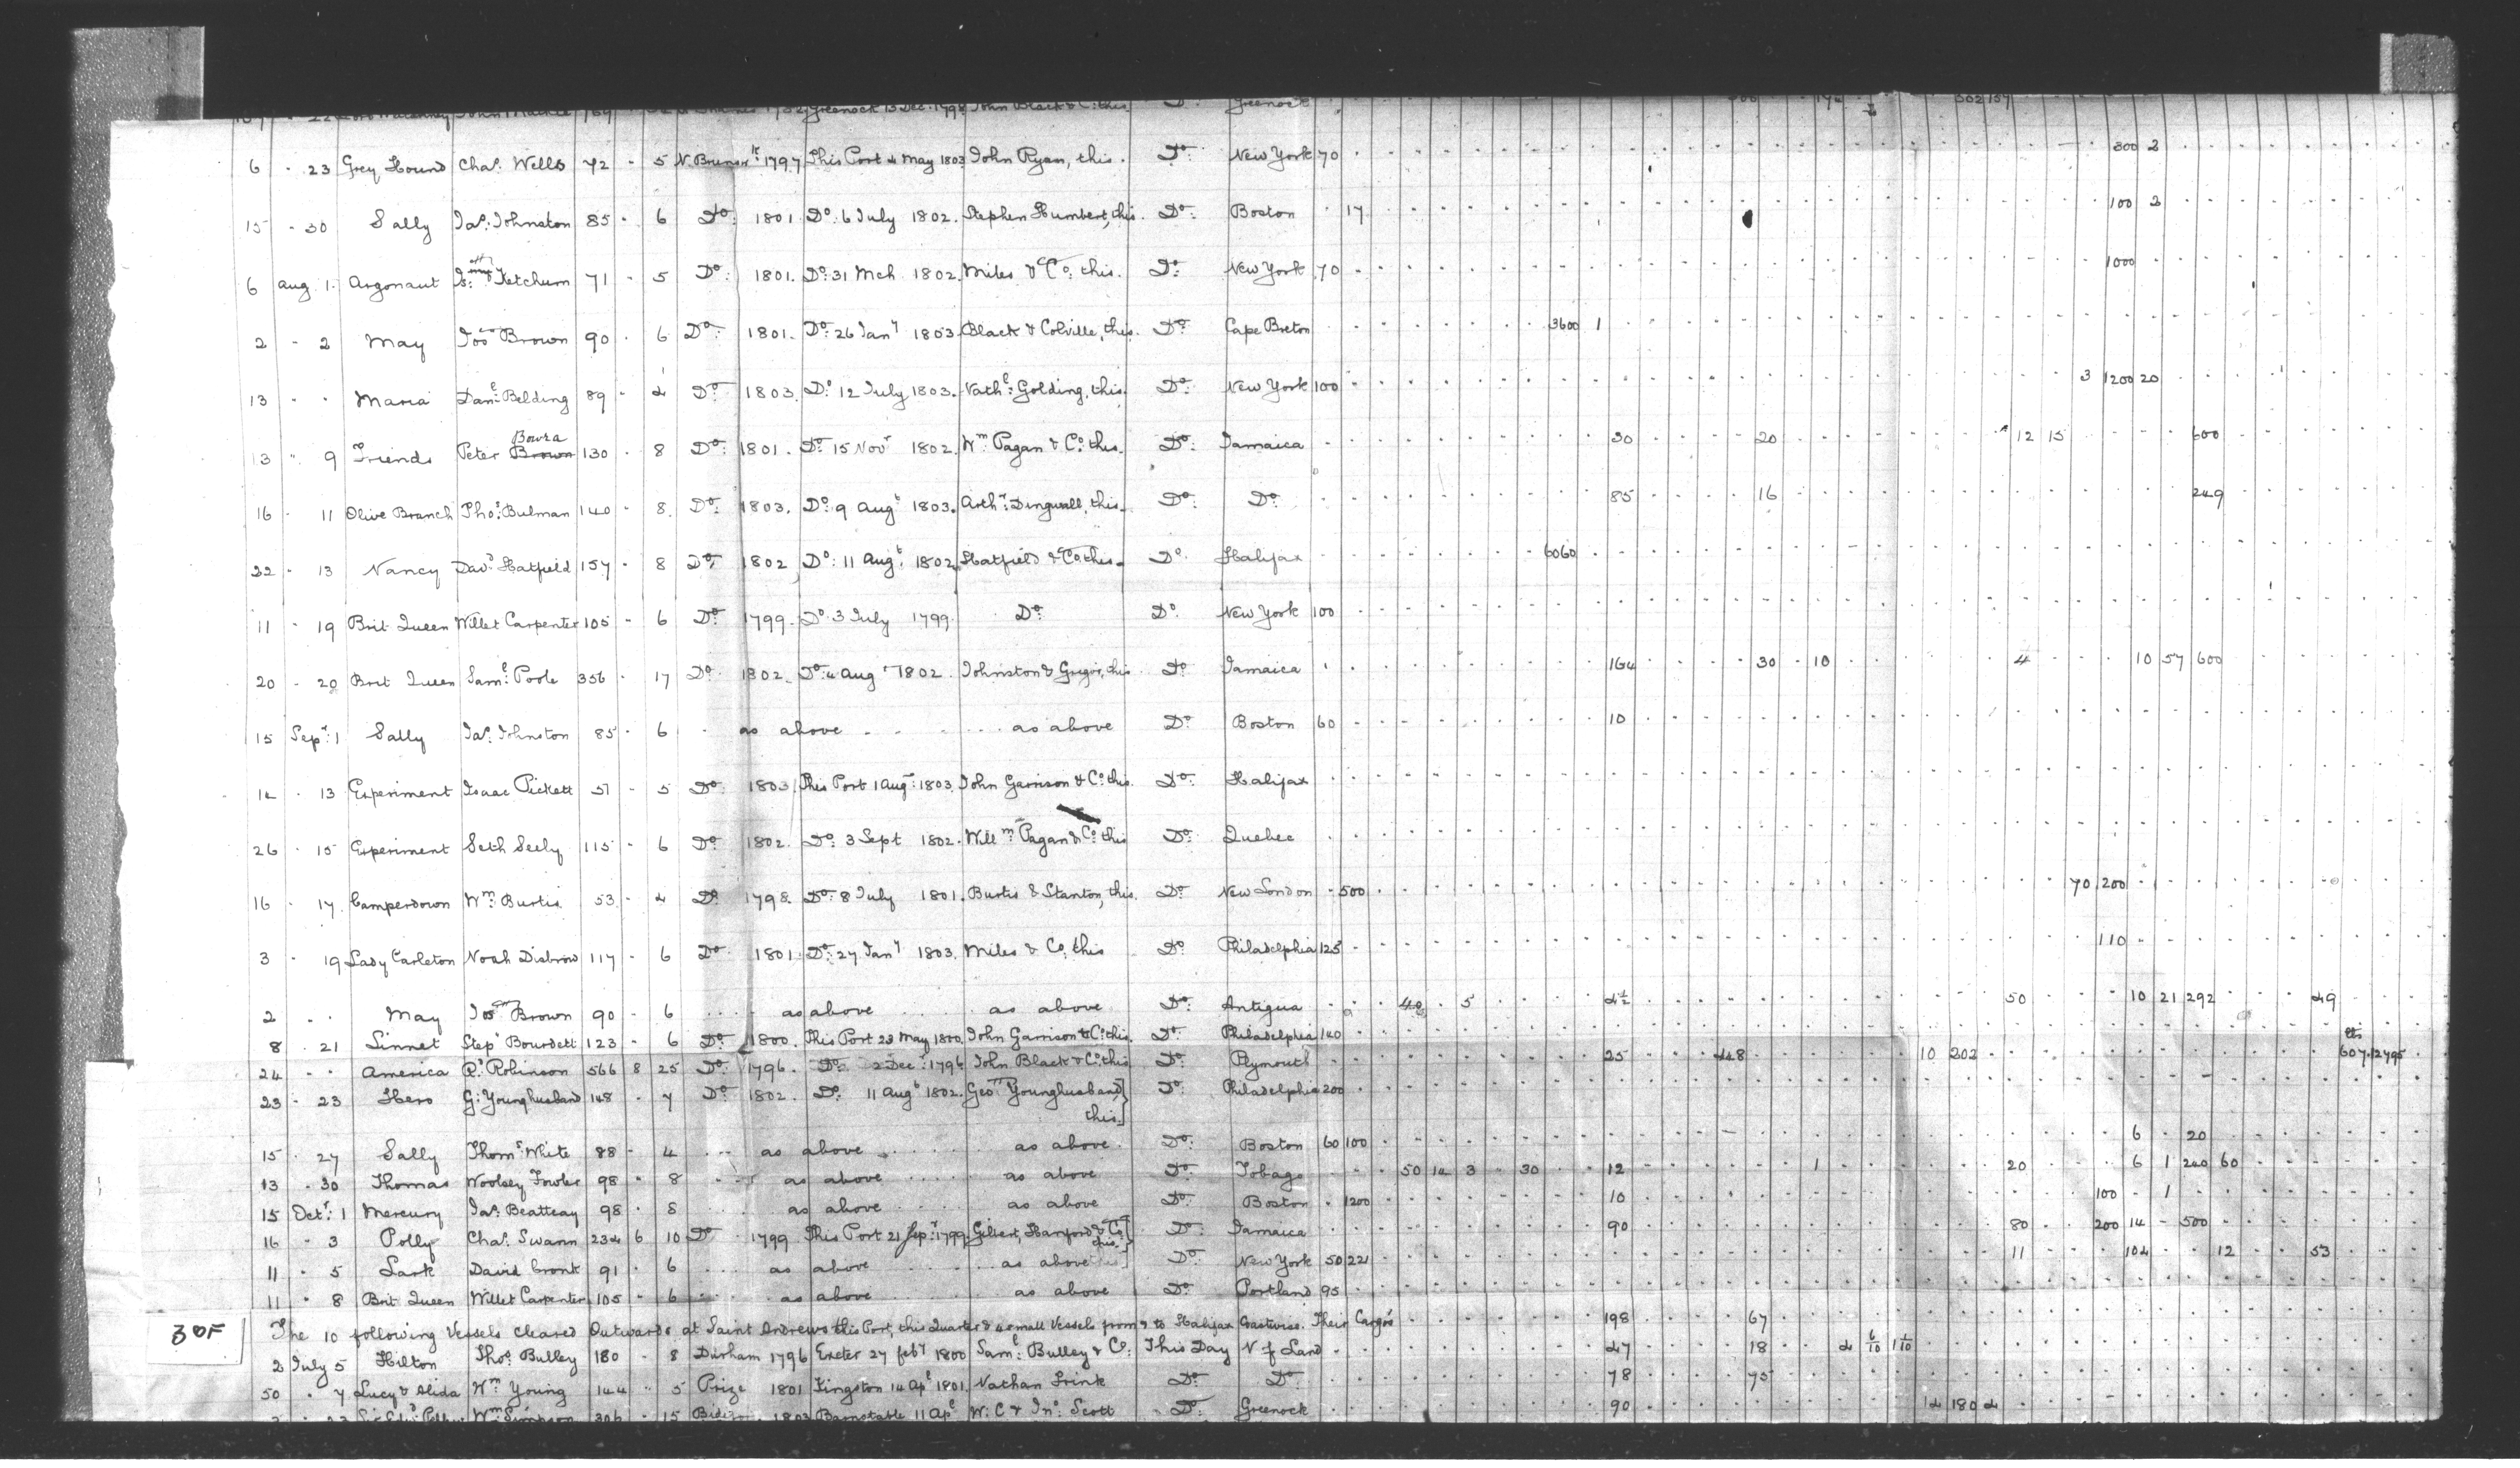 Greenock 13 Dec: 1798 John Black & Co: this Do Greenock 302 157
6 - 23 Grey Hound Chas. Wells 72 - 5 N. Brunswk: 1797 This Port 4 May 1803 John Ryan, this. Do: New York 70 300 2
15 - 30 Sally Jas: Johnston 85 - 6 Do: 1801. Do: 6 July 1802. Stephen Humbert, this. Do: Boston 17 100 2
6 Aug 1. Argonaut Ketchum 71 - 5 Do: 1801. Do: 31 Mch 1802. Miles & Co: this. Do: New York 70 1000
2 - 2 May Jos Brown 90 - 6 Do: 1801. Do: 26 Jany 1803. Black & Colville, this. Do: Cape Breton 3600 1
13 - - Maria Danl: Belding 89 - 4 Do: 1803. Do: 12 July 1803. Nathl: Golding, this. Do: New York 100 3 1200 20
Bowra
13 " 9 Friends Peter Brown 130 - 8 Do: 1801. Do: 15 Novr 1802. Wm Pagan & Co: this. Do: Jamaica 30 20 12 15 600
16 - 11 Olive Branch Thos: Bulman 140 - 8. Do: 1803. Do: 9 Augt 1803. Arthr: Dingwall, this. Do: Do: 85 16 249
22 - 13 Nancy Davd Hatfield 157 - 8 Do: 1802 Do: 11 Augt: 1802. Hatfield & Co: this. Do. Halifax 6060
11 - 19 Brit Queen Willet Carpenter 105 - 6 Do: 1799. Do: 3 July 1799. Do: Do: New York 100
20 - 20 Brit Queen Saml: Poole 356 - 17 Do: 1802. Do: 4 Aug 1802. Johnston & Gregor, this Do: Jamaica 164 30 10 4 10 57 600
15 Sepr: 1 Sally Jas. Johnston 85 - 6 as above as above Do: Boston 60 10
14 - 13 Experiment Isaac Pickett 57 - 5 Do: 1803 This Port 1 Aug: 1803. John Garrison & Co: this. Do: Halifax
26 - 15 Experiment Seth Seely 115 - 6 Do: 1802. Do: 3 Sept 1802. Willm: Pagan & Co: this Do: Quebec
16 - 17. Camperdown Wm: Burtis 53. - 4 Do: 1798. Do: 8 July 1801. Burtis & Stanton, this. Do: New London 500 70 200
3 - 19 Lady Carleton Noah Disbrow 117 - 6 Do: 1801. Do: 27 Jany 1803. Miles & Co: this Do: Philadelphia 125 110
2 - - May Jos Brown 90 - 6 as above as above Do: Antigua 40 5 4½ 50 10 21 292 49
8 - 21 Linnet Stepn Bourdett 123 - 6 Do: 1800. This Port 23 May 1800. John Garrison & Co: this. Do: Philadelphia 140
24 - - America Rt: Robinson 566 8 25 Do: 1796. Do: 2 Dec: 1796 John Black & Co: this Do: Plymouth 25 448 10 202 607 12795
23 - 23 Hero G: Younghusband 148 - 7 Do: 1802. Do: 11 Augt 1802. Geo Younghusband} Do: Philadelphia 200
this.}
15 - 27 Sally Thoms: White 88 - 4 as above as above Do: Boston 60 100 6 20
13 - 30 Thomas Woolsey Fowler 98 - 8 as above as above Do: Tobago 50 14 3 30 12 1 20 6 1 240 60
15 Octr: 1 Mercury Jas. Beatteay 98 - 8 as above as above Do: Boston 1200 10 100 1
16 - 3 Polly Chas. Swann 234 6 10 Do 1799 This Port 21 Sepr: 1799. Gilbert, Hanford & Co} this.} Do: Jamaica 90 80 200 14 500
11 - 5 Lark David Cronk 91 - 6 as above as above Do: New York 50 221 11 104 12 53
11 - 8 Brit Queen Willet Carpenter 105 - 6 as above as above Do: Portland 95
30F
The 10 following Vessels cleared Outwards at Saint Andrews this Port, this Quarter & 4 small Vessels from & to Halifax Coastwise. Their Cargos 198 67
2 July 5 Hilton Thos. Bulley 180 - 8 Durham 1796 Exeter 27 feby 1800 Saml: Bulley & Co: This Day N f Land 47 18 4 6/10 1 1/10
50 - 7 Lucy & Alida Wm Young 144 " 5 Prize 1801 Kingston 14 Apl 1801. Nathan Frink Do: Do: 78 75
Wm Simpson 306 - 15 1803 Barnstable 11 Apl W. C & Jno: Scott Do: Greenock 90 14 180 4